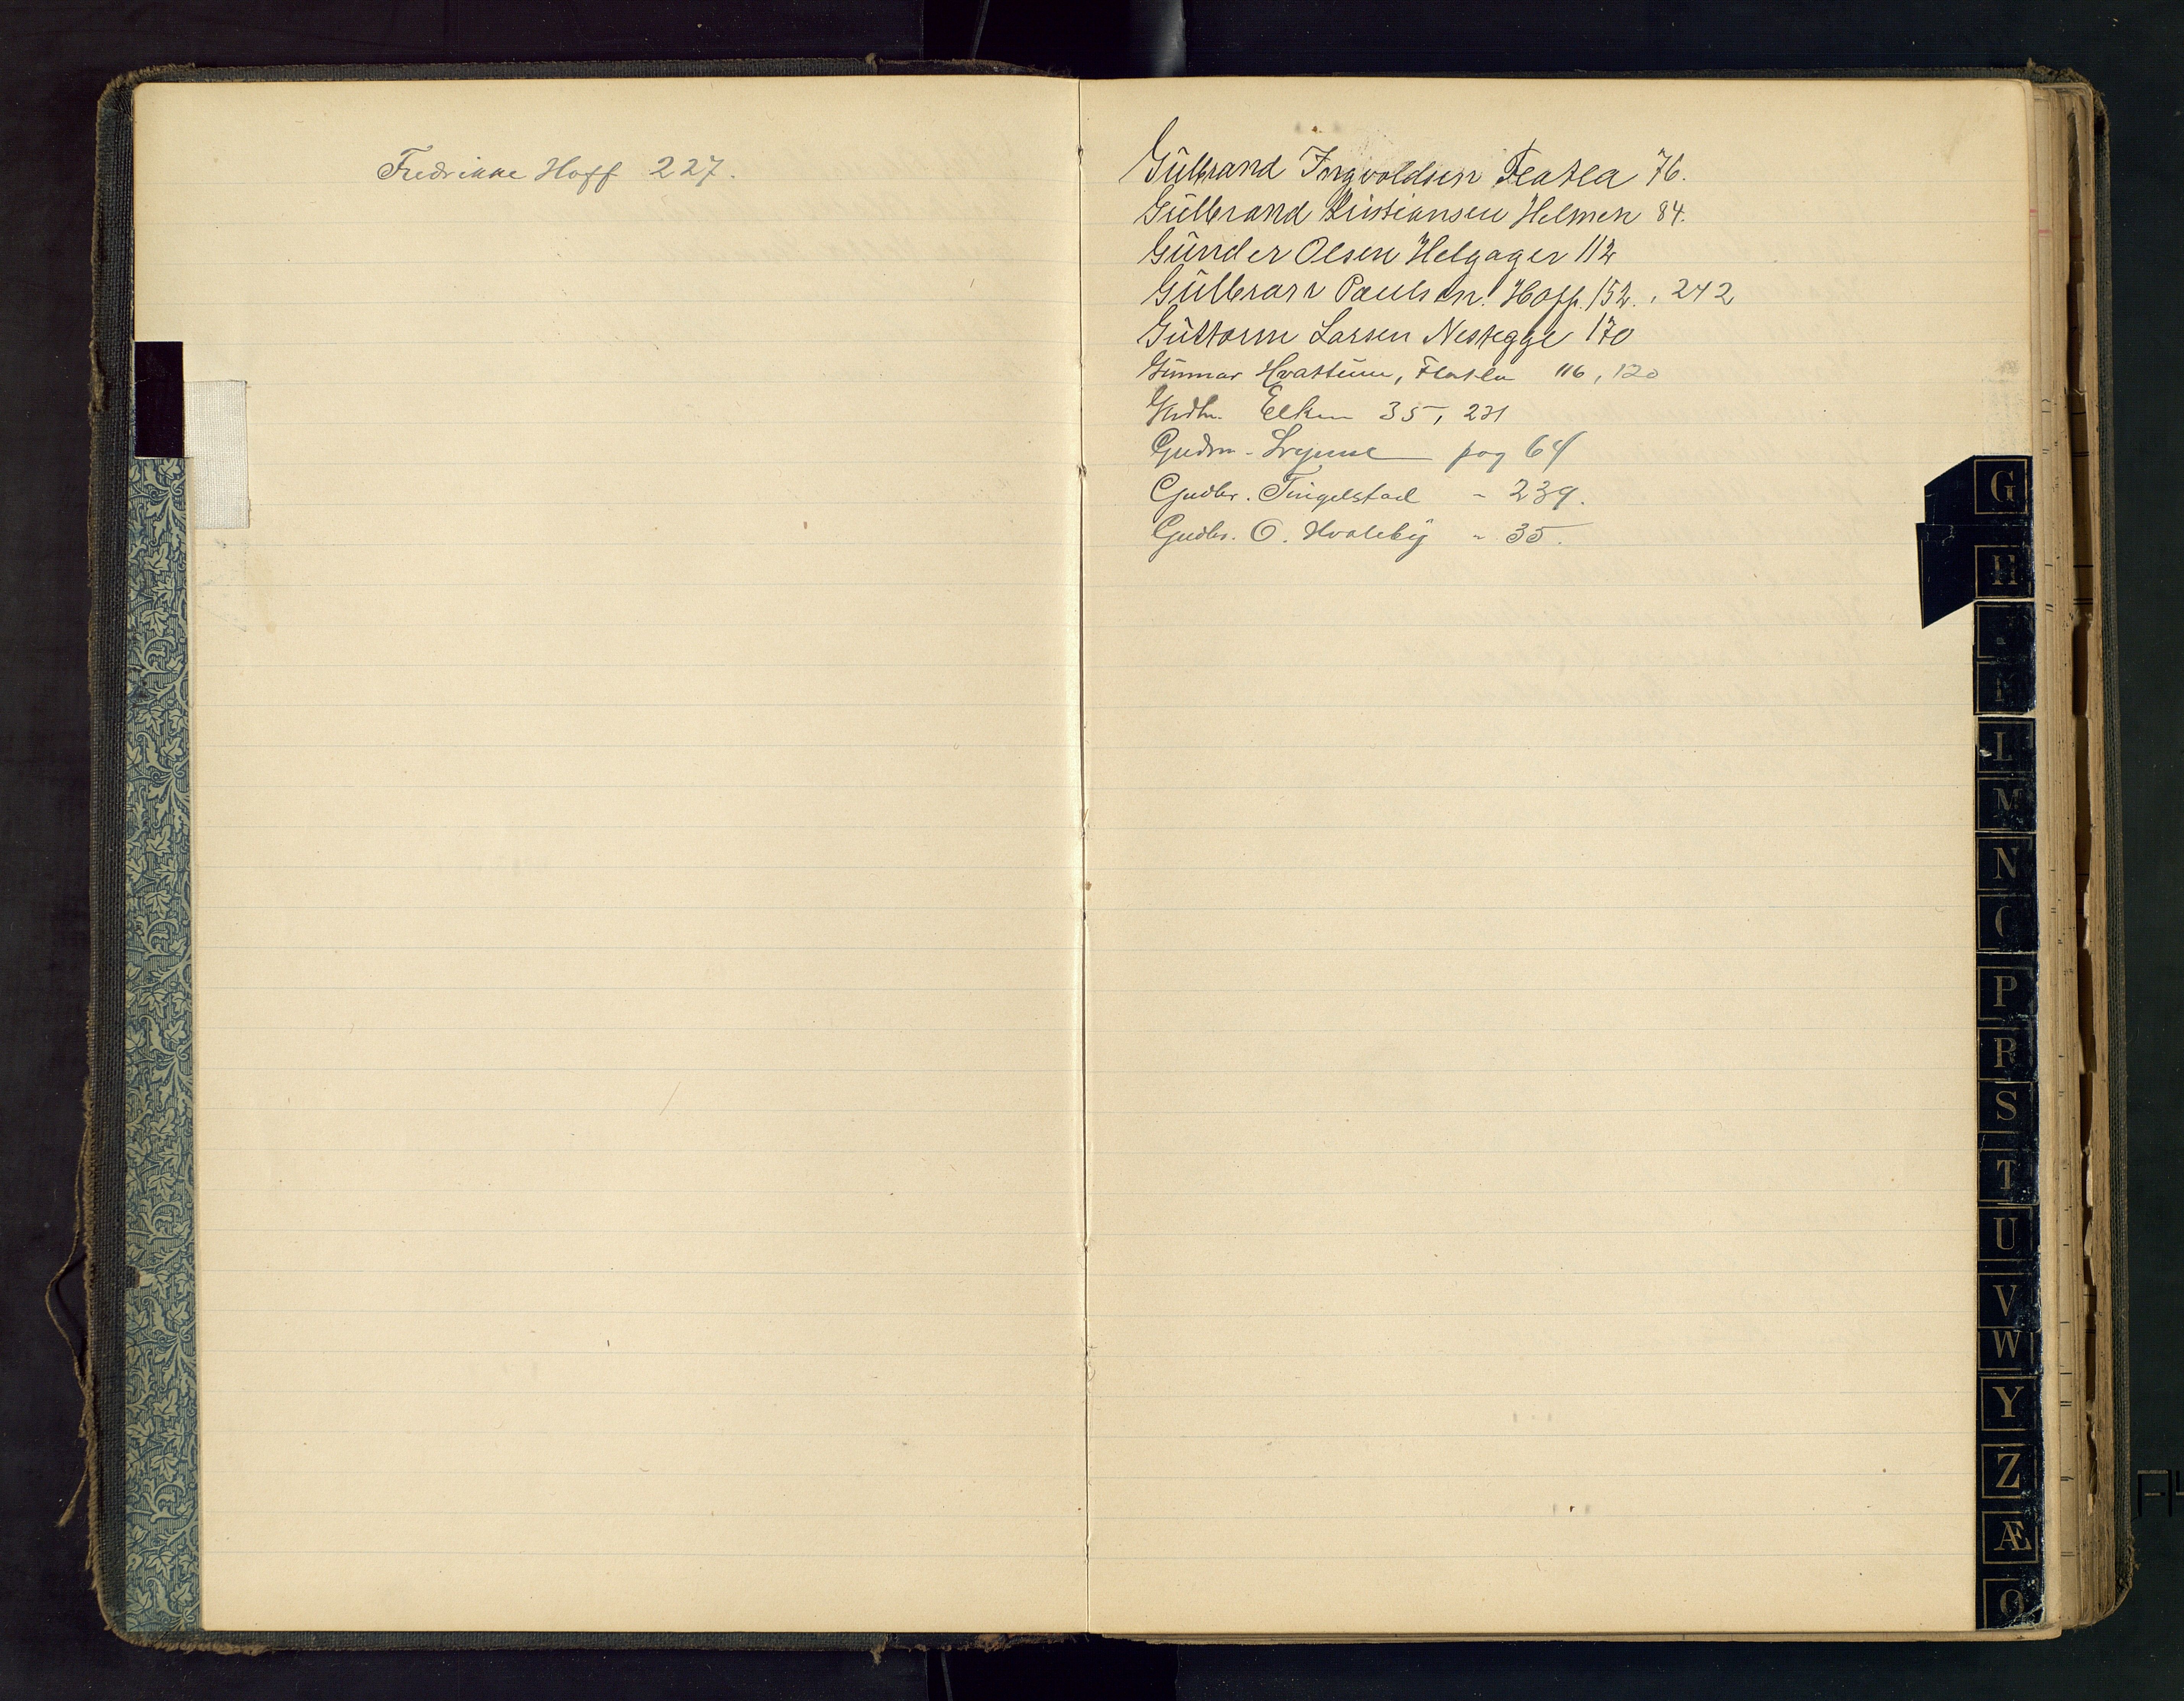 Fredrikke Hoff 227.
Gulbrand Ingvoldsen Flatla 76.
Gulbrand Kristiansen Helmen 84.
Gunder Olsen Helgager 112
Gulbran Paulsen Hoff. 152. , 242
Guttorm Larsen Nestegge 170
Gunnar Hvattum, Flatla 116, 120
Gudbr. Elken 35, 231
pag 64
Gudbr. Tingelstad - 239.
Gudbr. O. Hvaleby " 35.
G
H
L
M
N
P
R
S
T
U
V
W
Y
Z
Æ